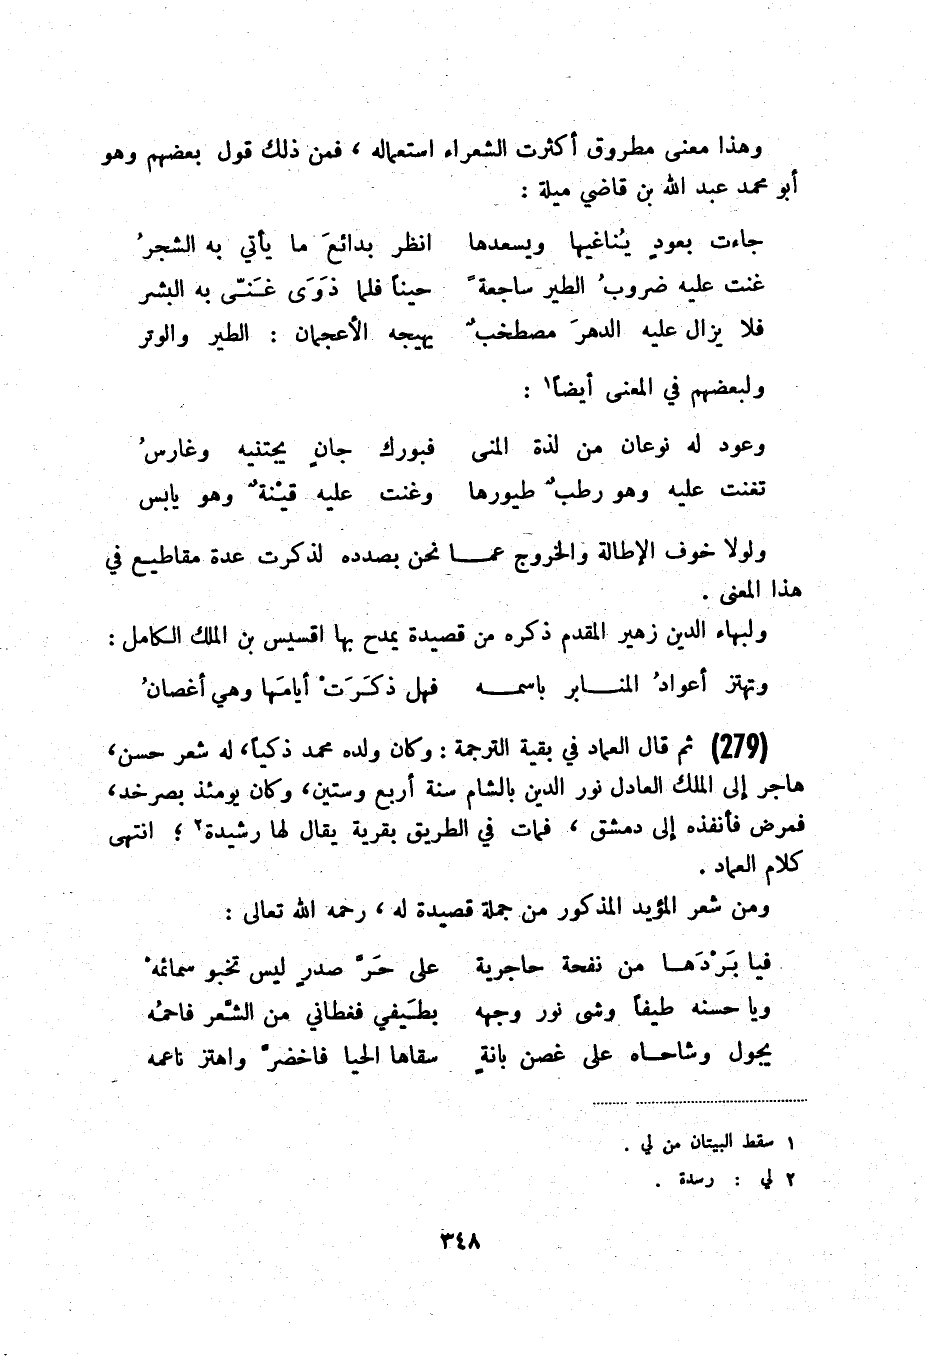 وهذا معنى مطروق أكثرت الشعراء استعماله ، فمن ذلك قول بعضهم وهو
أبو محمد عبد الله بن قاضي ميلة :
جاءت بعودٍ يُناغيها ويسعدها انظر بدائعَ ما يأتي به الشجرُ
غنت عليه ضروبُ الطير ساجعةً حيناً فلما ذَوَى غَنّى به البشر
فلا يزال عليه الدهرَ مصطخبٌ يهيجه الأعجمان : الطير والوتر
ولبعضهم في المعنى أيضاً١ :
وعود له نوعان من لذة المنى فبورك جانٍ يجتنيه وغارسُ
تغنت عليه وهو رطبٌ طيورها وغنت عليه قيْنةٌ وهو يابس
ولولا خوف الإطالة والخروج عمـا نحن بصدده لذكرت عدة مقاطيع في
هذا المعنى .
ولبهاء الدين زهير المقدم ذكره من قصيدة يمدح بها اقسيس بن الملك الكامل :
وتهتز أعوادُ المنـابر باسمـه فهل ذكَرَتْ أيامَها وهي أغصانُ
(279) ثم قال العماد في بقية الترجمة : وكان ولده محمد ذكياً، له شعر حسن،
هاجر إلى الملك العادل نور الدين بالشام سنة أربع وستين، وكان يومئذ بصرخد،
فمرض فأنفذه إلى دمشق ، فمات في الطريق بقرية يقال لها رشيدة٢ ؛ انتهى
كلام العماد .
ومن شعر المؤيد المذكور من جملة قصيدة له ، رحمه الله تعالى :
فيا بَرْدَهـا من نفحة حاجرية على حَرَّ صدرٍ ليس تخبو سمائمهْ
ويا حسنه طيفاً وشى نور وجهه بطَيفي فغطاني من الشَّعر فاحمُه
يجول وشاحـاه على غصن بانةٍ سقاها الحيا فاخضرَّ واهتز ناعمه
١ سقط البيتان من لي .
٢ لي : رسدة .
٣٤٨